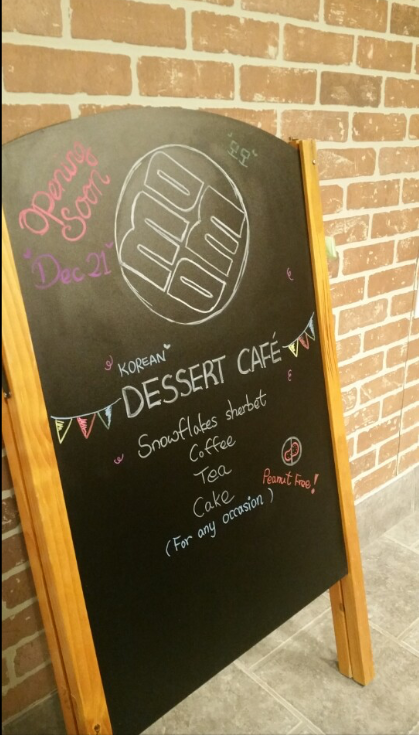 Opening
Soon
"Dec 21"
"모모"
mo
mo
KOREAN
DESSERT CAFÉ
Snowflakes sherbet
Coffee
Tea
Cake
(For any occasion)
Peanut Free!